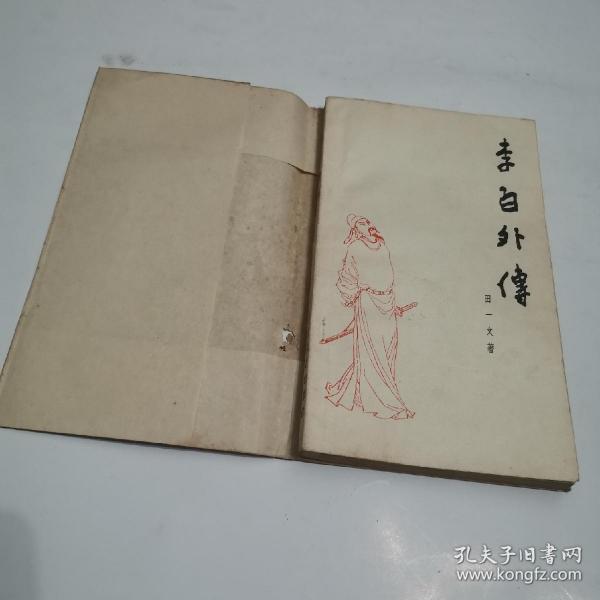 李白外傳
田一文著
孔夫子旧書网
www.kongfz.com